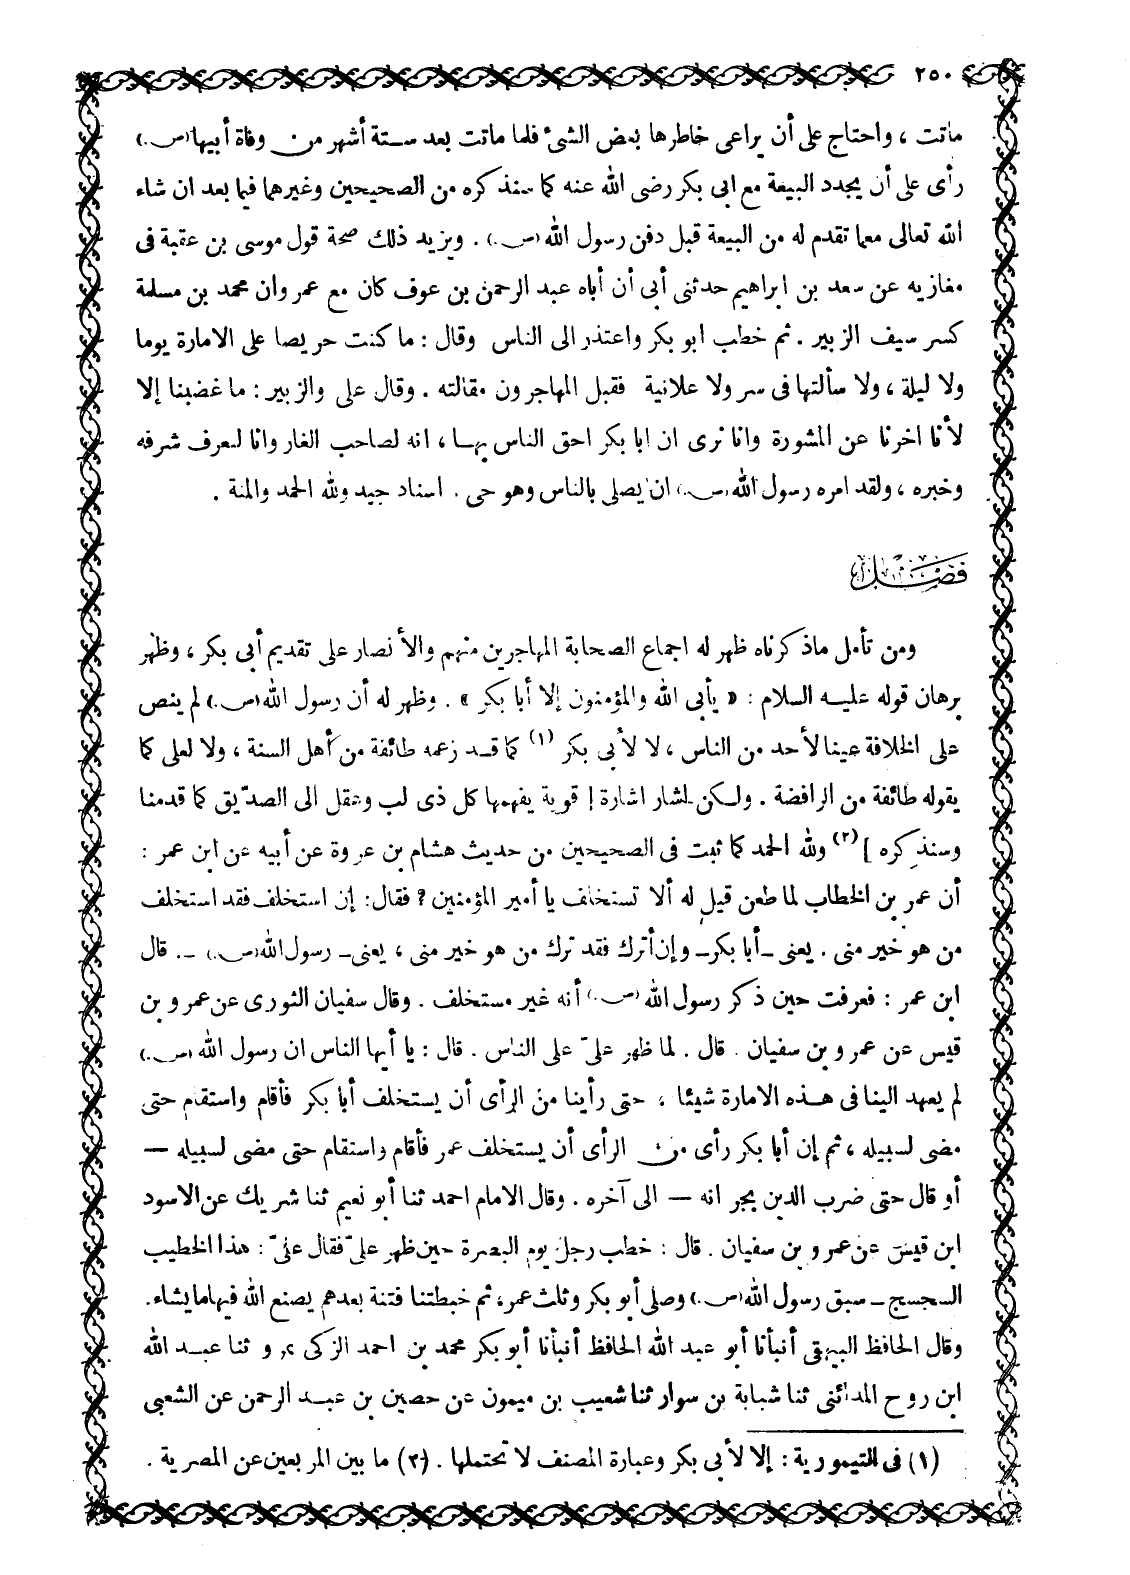 ٢٥٠
ماتت ، واحتاج على أن يراعى خاطرها بعض الشئ فلما ماتت بعد ستة أشهر من وفاة أبيها (ص.)
رأى على أن يجدد البيعة مع ابى بكر رضى الله عنه كما سنذكره من الصحيحين وغيرهما فيما بعد ان شاء
الله تعالى معما تقدم له من البيعة قبل دفن رسول الله (ص.) . ويزيد ذلك صحة قول موسى بن عقبة فى
مغازيه عن سعد بن ابراهيم حدثنى أبى أن أباه عبد الرحمن بن عوف كان مع عمر وان محمد بن مسلمة
كسر سيف الزبير . ثم خطب ابو بكر واعتذر الى الناس وقال : ما كنت حريصا على الامارة يوما
ولا ليلة ، ولا سألتها فى سر ولا علانية فقبل المهاجرون مقالته . وقال على والزبير : ما غضبنا إلا
لأنا اخرنا عن المشورة وانا نرى ان ابا بكر احق الناس بها ، انه لصاحب الغار وانا لنعرف شرفه
وخبره ، ولقد امره رسول الله (ص.) ان يصلى بالناس وهو حى . اسناد جيد ولله الحمد والمنة .
فصل
ومن تأمل ماذكرناه ظهر له اجماع الصحابة المهاجرين منهم والأنصار على تقديم أبى بكر ، وظهر
برهان قوله عليه السلام : « يأبى الله والمؤمنون إلا أبا بكر » . وظهر له أن رسول الله (ص.) لم ينص
على الخلافة عينا لأحد من الناس ، لا لأبى بكر (١) كما قد زعمه طائفة من أهل السنة ، ولا لعلى كما
يقوله طائفة من الرافضة . ولكن اشار اشارة [ قوية يفهمها كل ذى لب وعقل الى الصدّيق كما قدمنا
وسنذكره ] (٢) ولله الحمد كما ثبت فى الصحيحين من حديث هشام بن عروة عن أبيه عن ابن عمر :
أن عمر بن الخطاب لما طعن قيل له ألا تستخلف يا أمير المؤمنين ? فقال : إن استخلف فقد استخلف
من هو خير منى . يعنى ـ أبا بكر ـ وإن أترك فقد ترك من هو خير منى ، يعنى ـ رسول الله (ص.) ـ . قال
ابن عمر : فعرفت حين ذكر رسول الله (ص.) أنه غير مستخلف . وقال سفيان الثورى عن عمرو بن
قيس عن عمرو بن سفيان . قال . لما ظهر علىّ على الناس . قال : يا أيها الناس ان رسول الله (ص.)
لم يعهد الينا فى هذه الامارة شيئا ، حتى رأينا من الرأى أن يستخلف أبا بكر فأقام واستقام حتى
مضى لسبيله ، ثم إن أبا بكر رأى من الرأى أن يستخلف عمر فأقام واستقام حتى مضى لسبيله —
أو قال حتى ضرب الدين بجرانه — الى آخره . وقال الامام احمد ثنا أبو نعيم ثنا شريك عن الاسود
ابن قيس عن عمرو بن سفيان . قال : خطب رجل يوم البصرة حين ظهر علىّ فقال علىّ : هذا الخطيب
السجسج ـ سبق رسول الله (ص.) وصلى أبو بكر وثلث عمر، ثم خبطتنا فتنة بعدهم يصنع الله فيها ما يشاء .
وقال الحافظ البيهقى أنبأنا أبو عبد الله الحافظ أنبأنا أبو بكر محمد بن احمد الزكى ثنا عبد الله
ابن روح المدائنى ثنا شبابة بن سوار ثنا شعيب بن ميمون عن حصين بن عبد الرحمن عن الشعبى
(١) فى التيمورية : إلا لأبى بكر وعبارة المصنف لا تحتملها . (٢) ما بين المربعين عن المصرية .